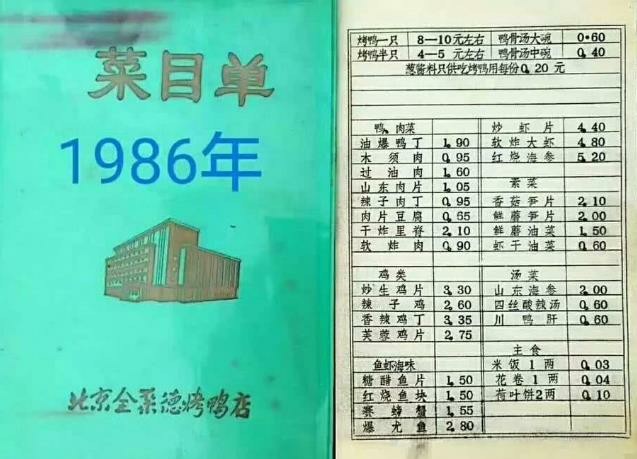 菜目单
1986年
北京全聚德烤鸭店
烤鸭一只 8—10元左右 鸭骨汤大碗 0.60
烤鸭半只 4—5 元左右 鸭骨汤中碗 0.40
葱酱料只供吃烤鸭用每份0.20元
鸭、肉菜 炒虾片 4.40
油爆鸭丁 1.90 软炸大虾 4.80
木须肉 0.95 红烧海参 5.20
过油肉 1.60
山东肉片 1.05 素菜
辣子肉丁 0.95 香菇笋片 2.10
肉片豆腐 0.65 鲜蘑笋片 2.00
干炸里脊 2.10 鲜蘑油菜 1.50
软炸肉 0.90 虾干油菜 0.60
鸡类 汤菜
炒生鸡片 3.30 山东海参 2.00
辣子鸡 2.60 四丝酸辣汤 0.60
香辣鸡丁 3.35 川鸭肝 0.60
芙蓉鸡片 2.75
主食
鱼虾海味 米饭1两 0.03
糖醋鱼片 1.50 花卷1两 0.04
红烧鱼块 1.50 荷叶饼2两 0.10
赛螃蟹 1.55
爆尤鱼 2.80